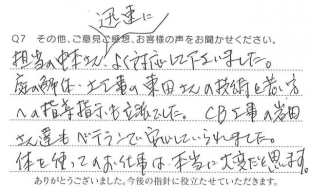 迅速に
Q7 その他、ご意見ご感想、お客様の声をお聞かせください。
担当の中本さん よく対応して下さいました。
庭の解体・土工事の東田さんの技術と若い方
への指導指示も立派でした。CB工事の岩田
さん達もベテランで安心していられました。
体を使ってのお仕事は本当に大変だと思います。
ありがとうございました。今後の指針に役立たせていただきます。